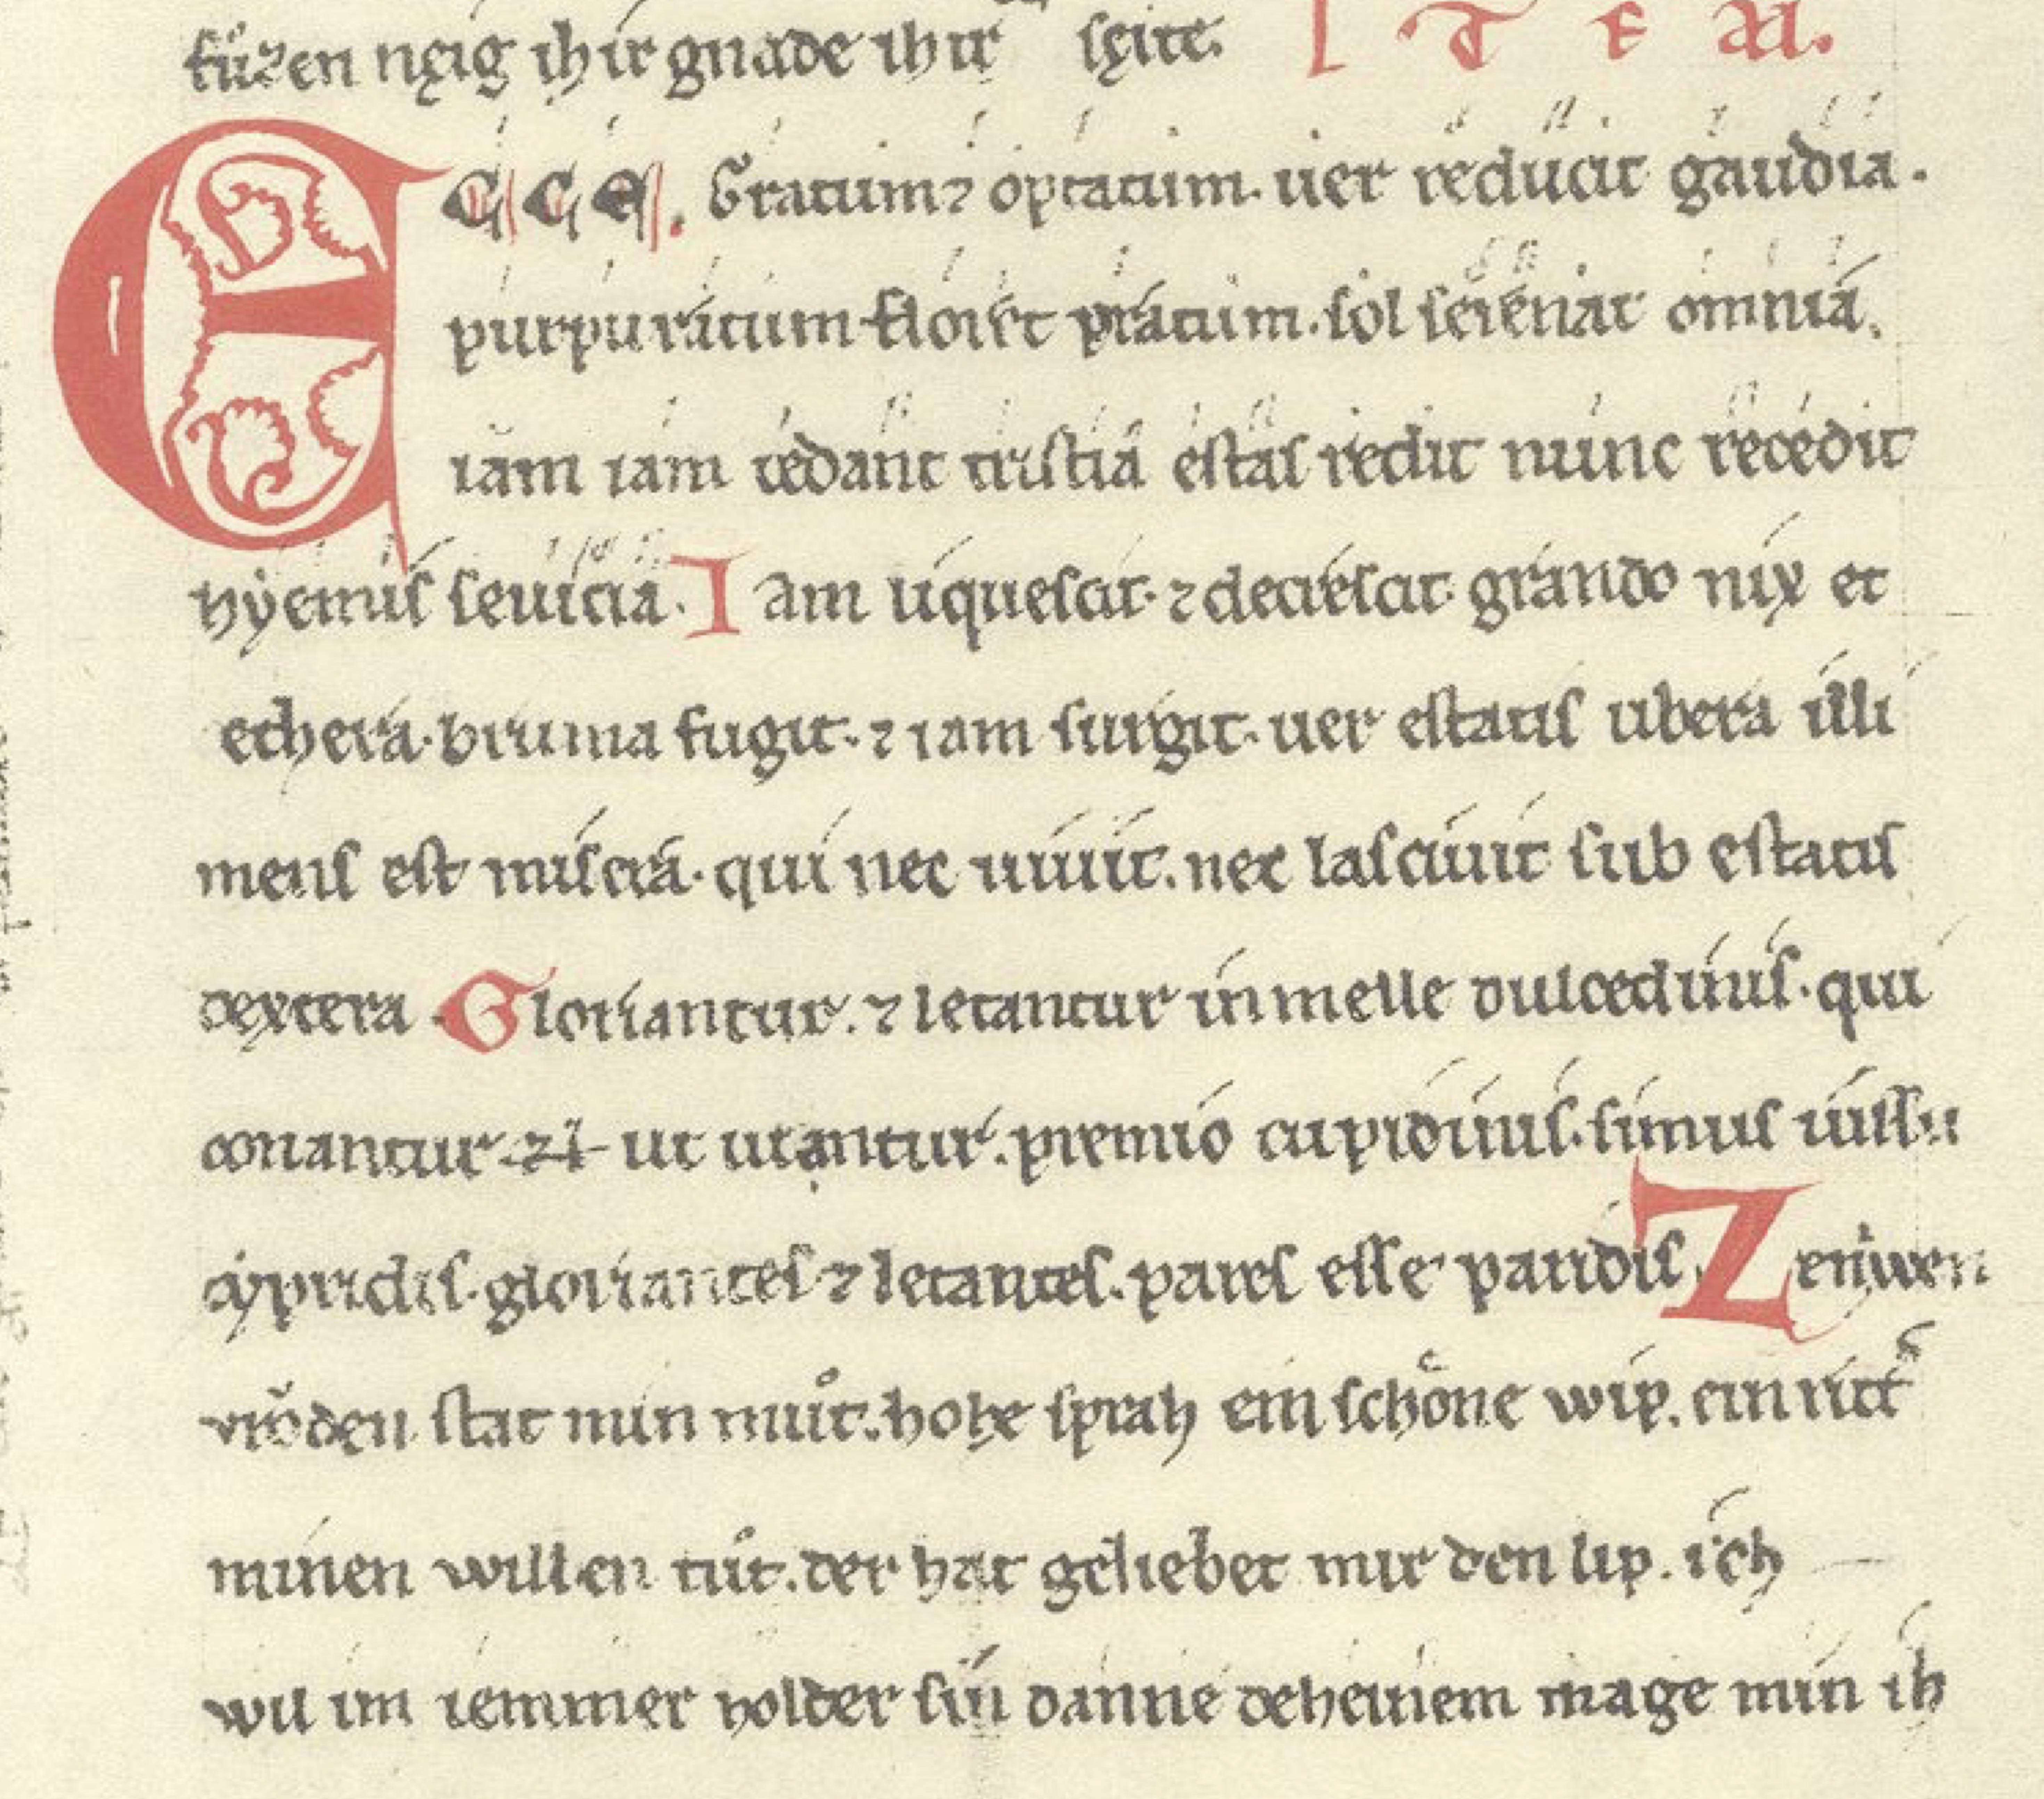 fůzen neig ih ir gnade ih ir seite. I T E M.
ECCE. Gratum ⁊ optatum. uer reducit gaudia.
purpuratum floret pratum. sol serenat omnia.
iam iam cedant tristia estas redit nunc recedit
hyemis seuicia. Iam liquescit. ⁊ decrescit grando nix et
cethera. bruma fugit. ⁊ iam surgit. uer estatis ubera illi
mens est misera. qui nec uiuit. nec lasciuit sub estatis
dextera Gloriantur. ⁊ letantur in melle dulcedinis. qui
conantur ut utantur. premio cupidinis. simus iussu
cypridis. gloriantes ⁊ letantes. pares esse paridis. Ze niwen
vrŏden stat min můt. hohe sprah ein schoͤne wip. ein ritt̾
minen willen tůt. der hat geliebet mir den lip. ich
wil im iemmer holder sin danne deheinem mage min ih